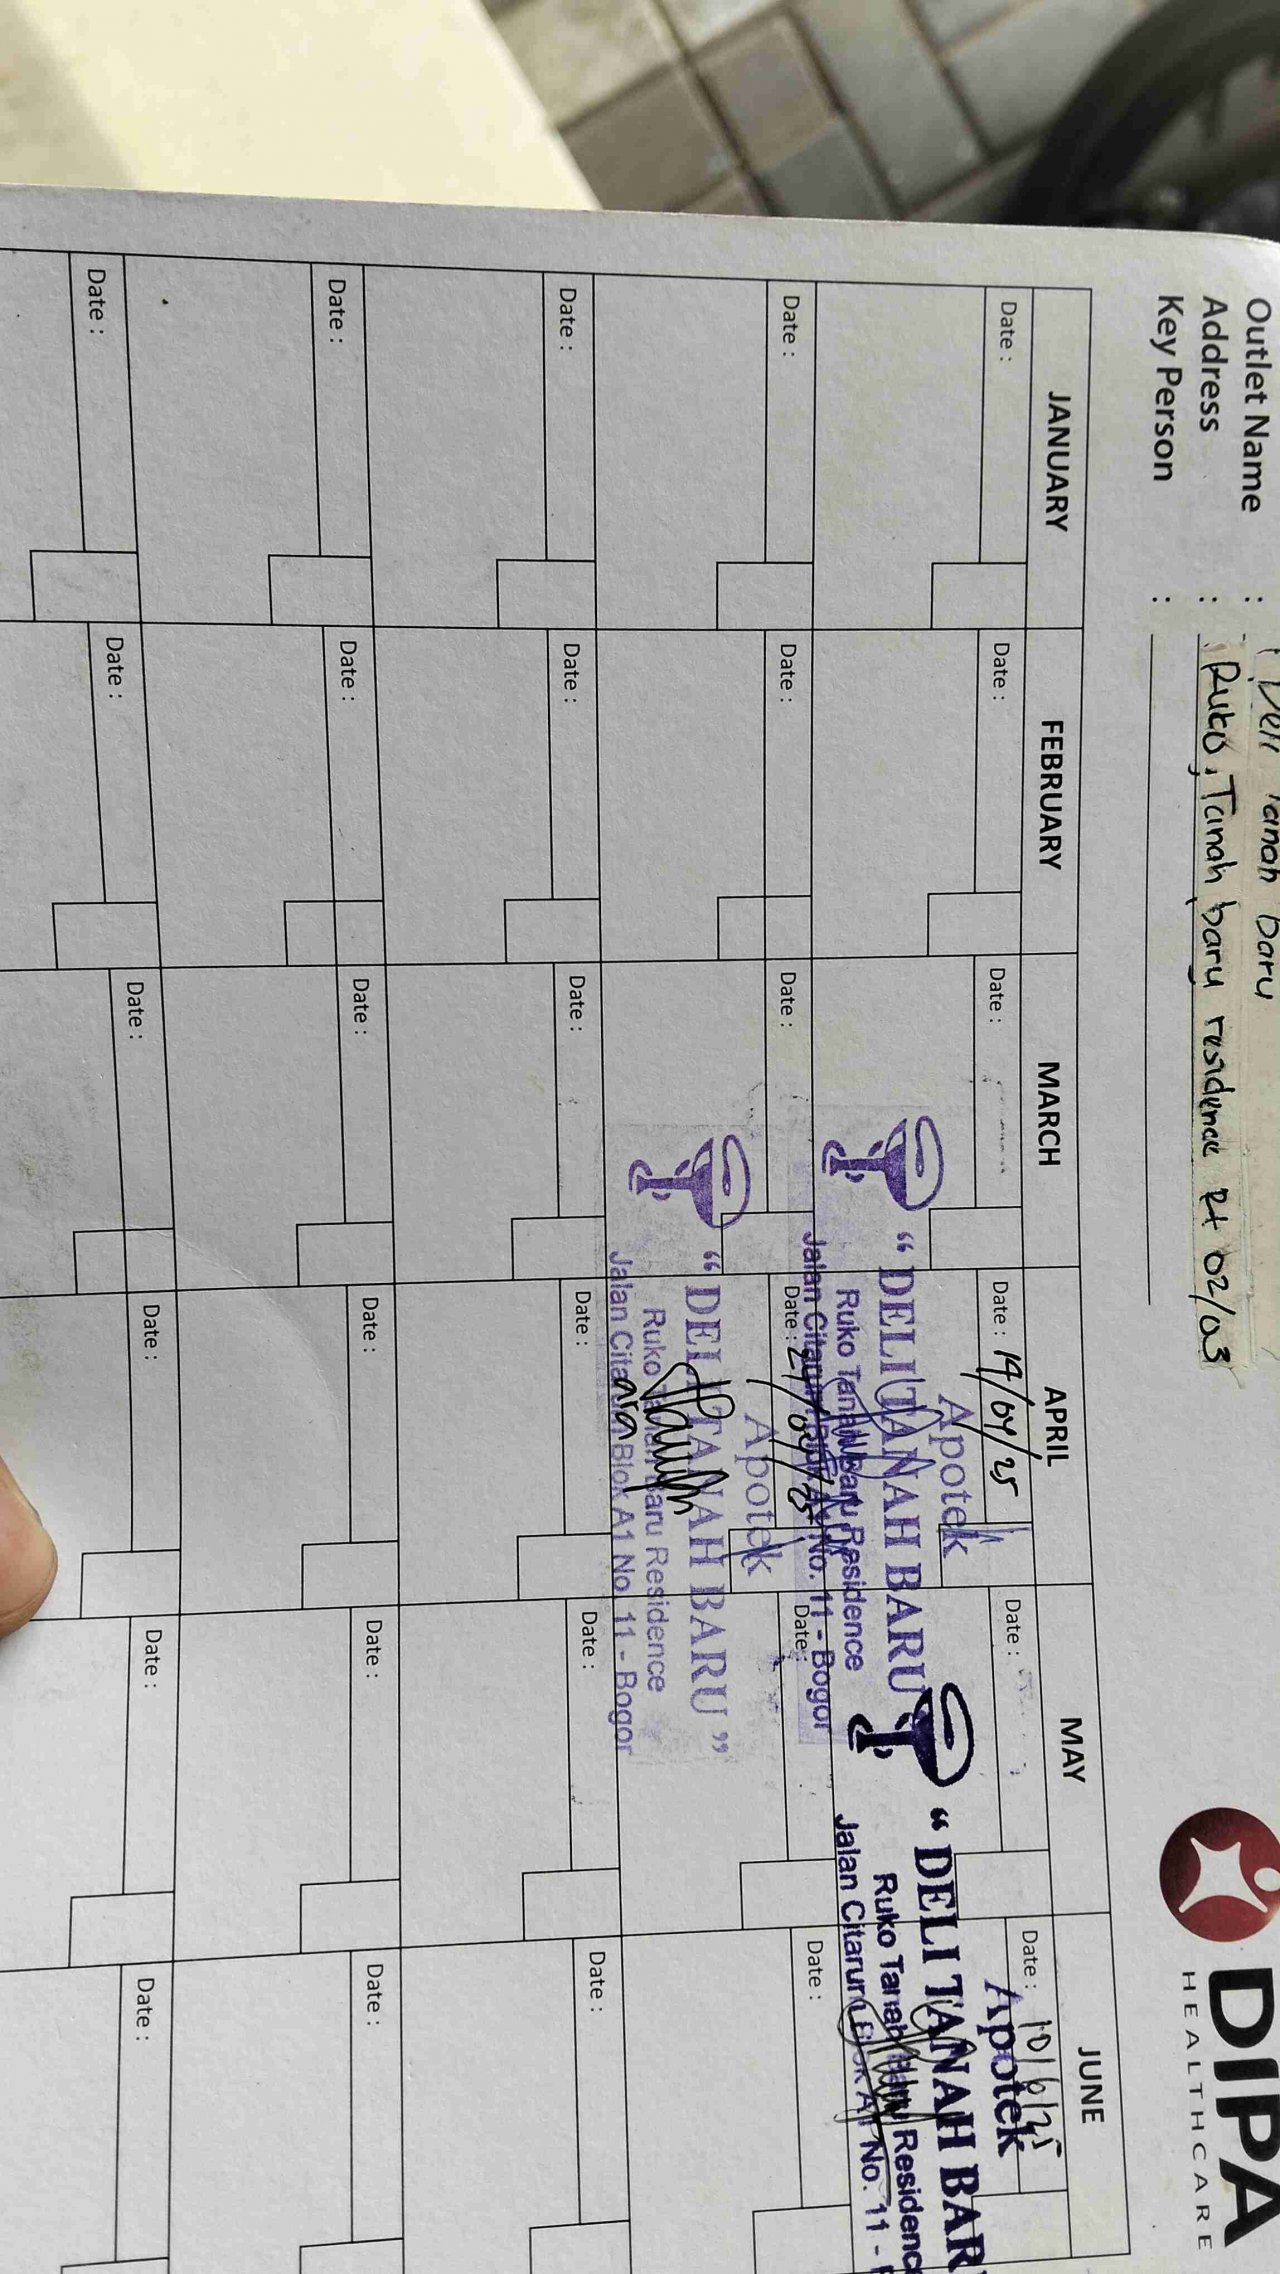 Outlet Name : Deli Tanah baru
Address : Ruko, Tanah baru residence Rt 02/03
Key Person :
DIPA
HEALTHCARE
JANUARY FEBRUARY MARCH APRIL MAY JUNE
Date : Date : Date : Date : 14/04/25 Date : Date : 10/6/25
Apotek
"DELI TANAH BARU
Ruko Tanah Baru Residence
Jalan Citarum Blok A1 No. 11 - Bogor
Apotek
"DELI TANAH BAR
Ruko Tanah Baru Residenc
Jalan Citarum Blok A1 No. 11 -
Date : Date : Date : Date : Date : Date :
Apotek
"DELI TANAH BARU"
Ruko Tanah Baru Residence
Jalan Citarum Blok A1 No. 11 - Bogor
Date : Date : Date : Date : Date : Date :
Date : Date : Date : Date : Date : Date :
Date : Date : Date : Date : Date : Date :